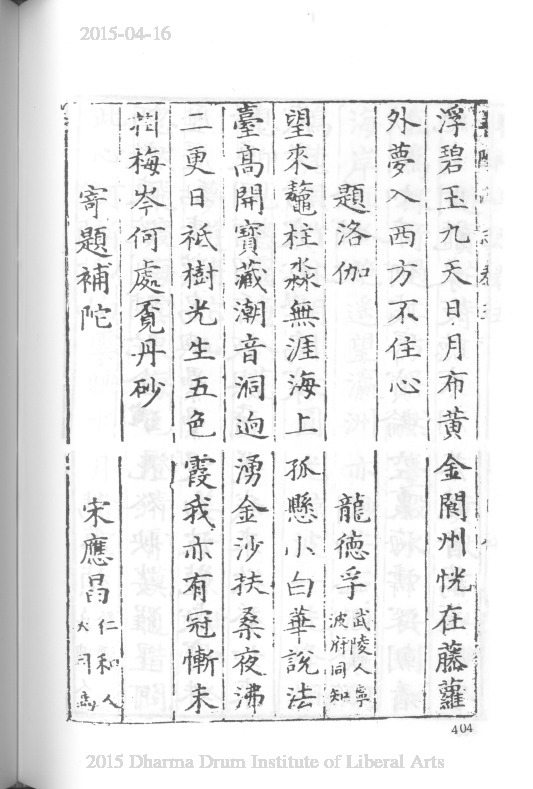 2015-04-16
浮碧玉九天日月布黄金閬州恍在藤蘿
外夢入西方不住心
題洛伽 龍德孚 武陵人寧波府同知
望來鼇柱淼無涯海上孤懸小白華說法
臺高開寶藏潮音洞逈湧金沙扶桑夜沸
二更日祇樹光生五色霞我亦有冠慚未
掛梅岑何處覔丹砂
寄題補陀 宋應昌 仁和人大司馬
404
2015 Dharma Drum Institute of Liberal Arts